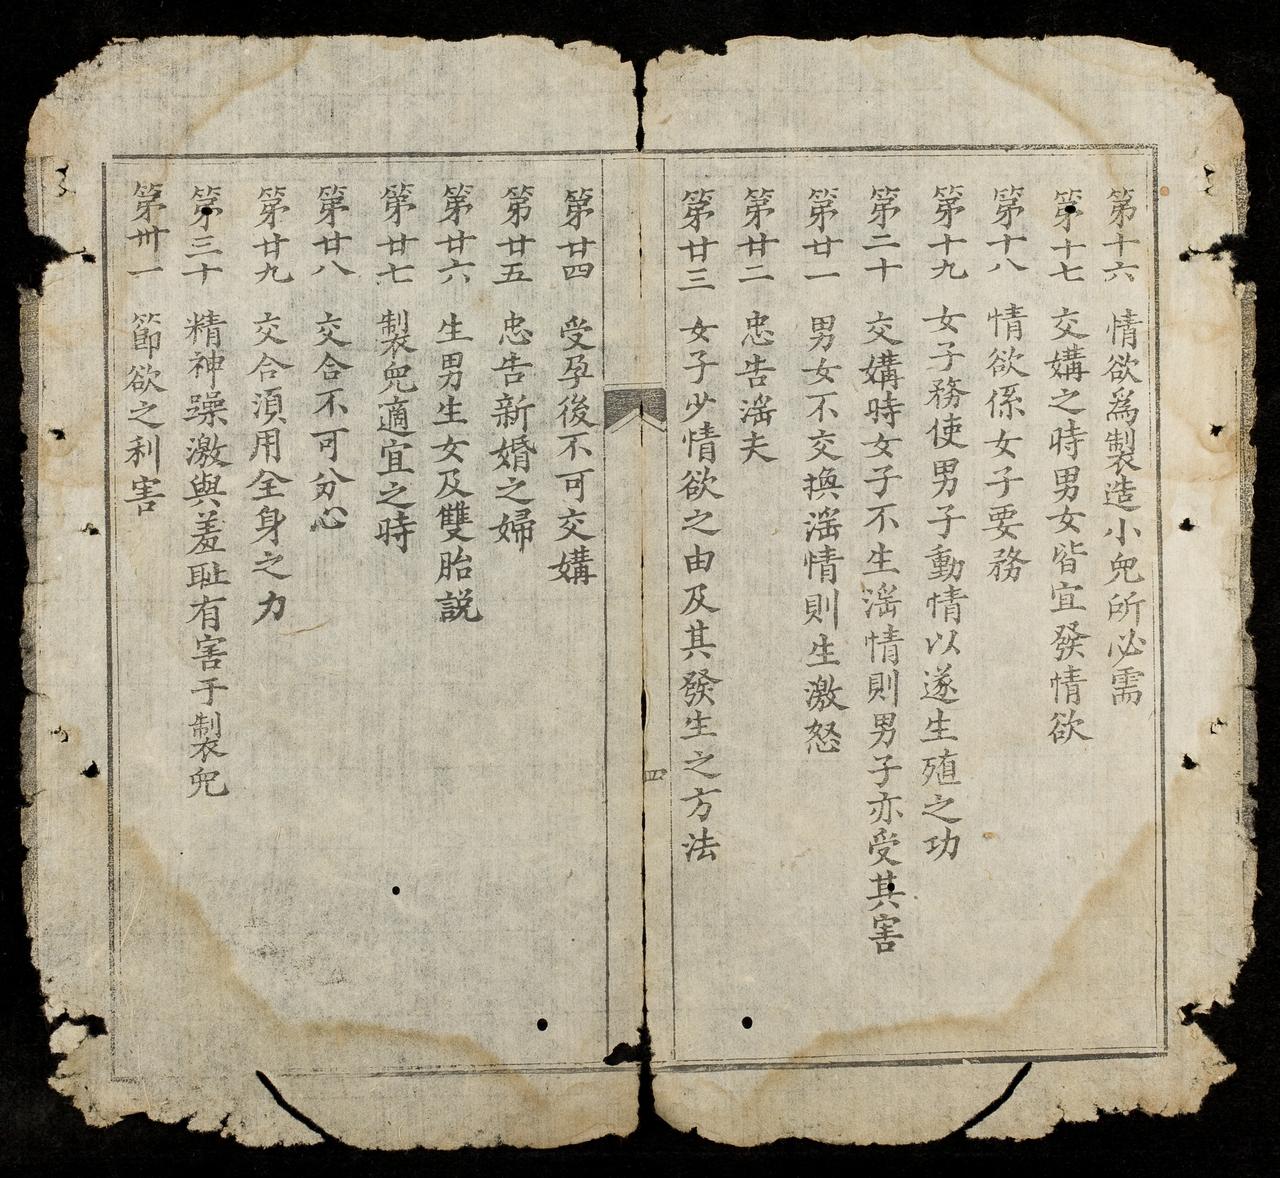 第十六 情欲爲製造小兒所必需
第十七 交媾之時男女皆宜發情欲
第十八 情欲係女子要務
第十九 女子務使男子動情以遂生殖之功
第二十 交媾時女子不生滛情則男子亦受其害
第廿一 男女不交換滛情則生激怒
第廿二 忠告滛夫
第廿三 女子少情欲之由及其發生之方法
四
第廿四 受孕後不可交媾
第廿五 忠告新婚之婦
第廿六 生男生女及雙胎説
第廿七 製兒適宜之時
第廿八 交合不可分心
第廿九 交合須用全身之力
第三十 精神躁激與羞耻有害于製兒
第卅一 節欲之利害